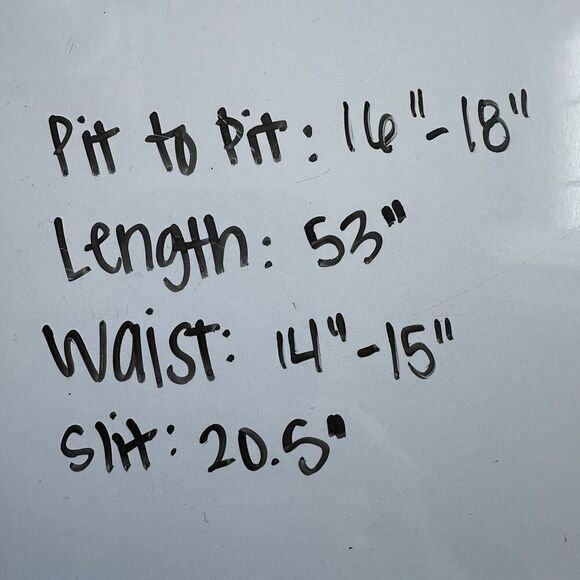 Pit to Pit: 16"-18"
Length: 53"
Waist: 14"-15"
Slit: 20.5"